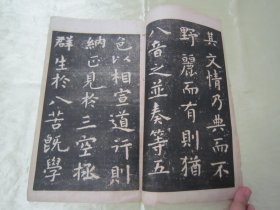 其文情乃典而不
野麗而有則猶
八音之並奏等五
色以相宣道行則
納正見於三空極
群生於八苦既學